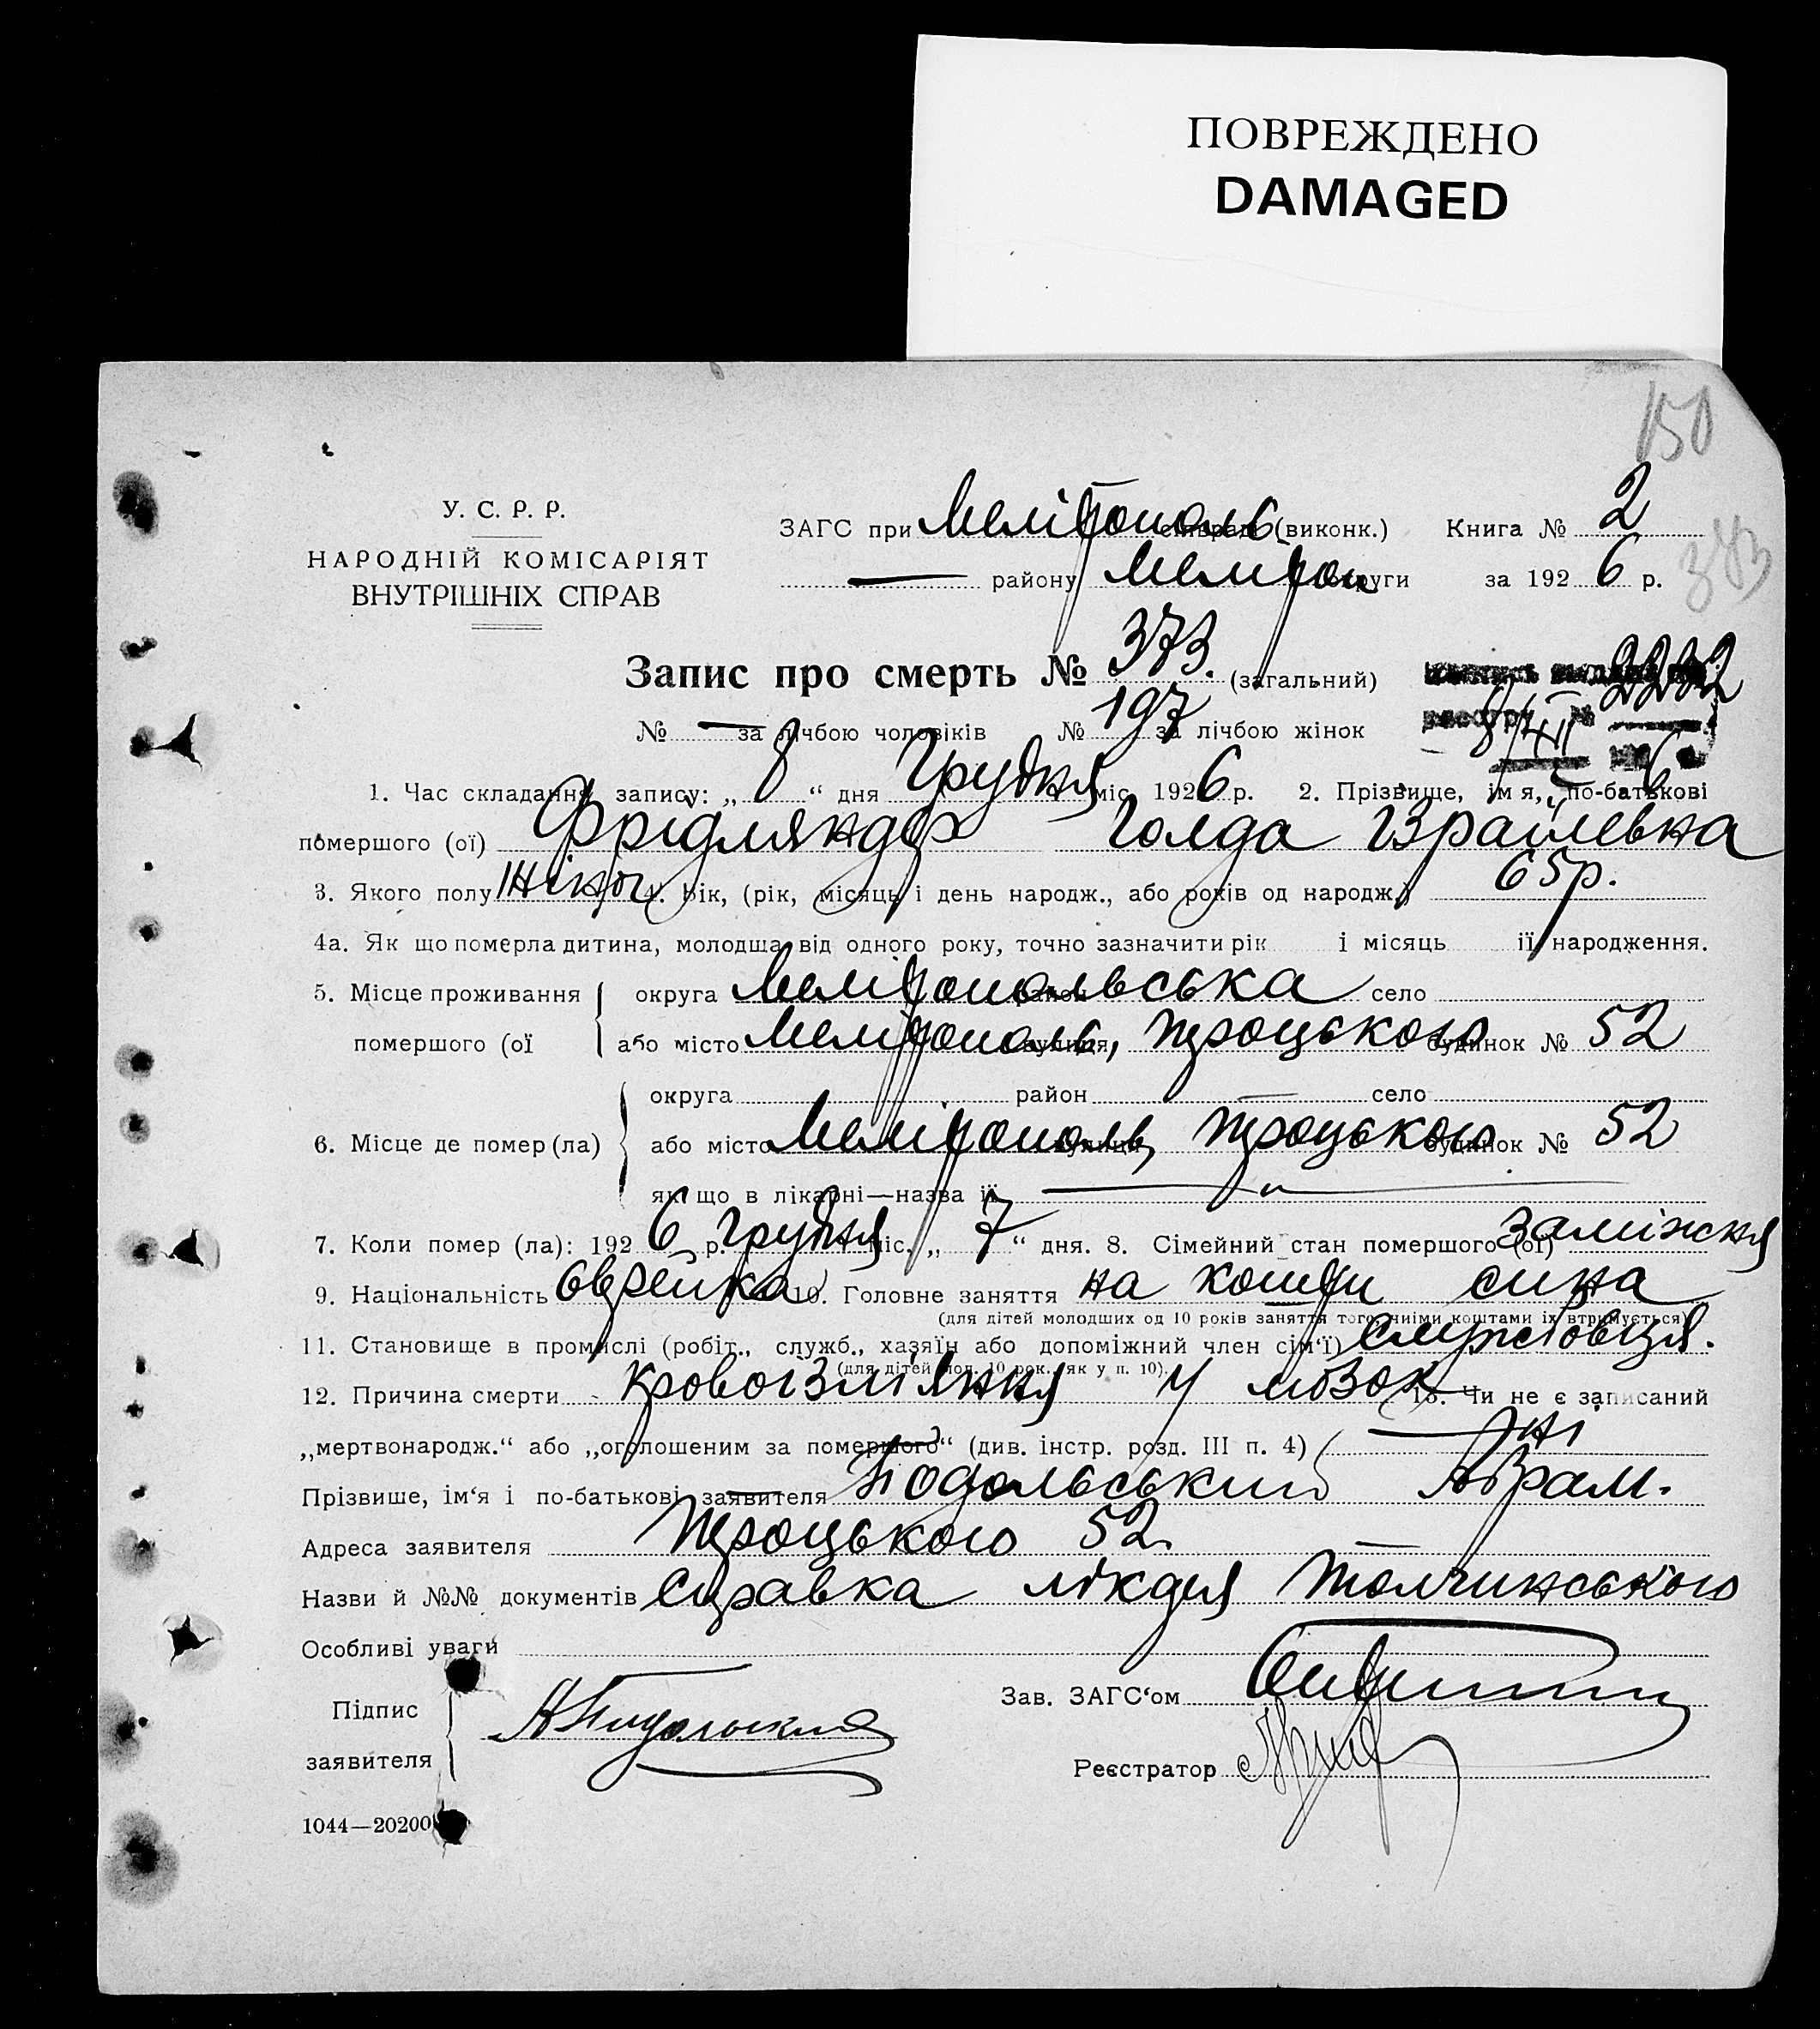 ПОВРЕЖДЕНО
DAMAGED
150
У. С. Р. Р.
НАРОДНІЙ КОМІСАРІЯТ
ВНУТРІШНІХ СПРАВ
ЗАГС при Мелітополь (виконк.) Книга № 2
— району Меліtоп округи за 1926 р.
373
Запис про смерть № 373. (загальний) 2232
№ — за лічбою чоловіків № 197 за лічбою жінок 8/XII 6
1. Час складання запису: „ 8 “ дня Грудня міс. 1926 р. 2. Прізвище, ім‘я, по-батькові
помершого (ої) Фрідляндер Голда Ізраілевна
3. Якого полу Жіноч 4. Вік, (рік, місяць і день народж., або років од народж.) 65 р.
4а. Як що померла дитина, молодша від одного року, точно зазначити рік і місяць її народження.
5. Місце проживання округа Мелітопольська район село
помершого (ої або місто Мелітополь, вулиця Троцького будинок № 52
округа район село
6. Місце де помер (ла) або місто Мелітополь, вулиця Троцького будинок № 52
як що в лікарні—назва її —
7. Коли помер (ла): 1926 р. Грудня міс. „ 7 “ дня. 8. Сімейний стан помершого (ої) Заміжня
9. Національність Єврейка 10. Головне заняття на кошти сина
(для дітей молодших од 10 років заняття того, чиїми коштами їх втримується)
11. Становище в промислі (робіт., служб., хазяїн або допоміжний член сім‘ї) Службовця.
(для дітей мол. 10 рок. як у п. 10).
12. Причина смерти у мозок 13. Чи не є записаний
„мертвонародж.“ або „оголошеним за помершого“ (див. інстр. розд. III п. 4) Ні
Прізвище, ім‘я і по-батькові заявителя Подольський Абрам.
Адреса заявителя Троцького 52.
Назви й №№ документів Справка лікаря Толчинського
Особливі уваги
Підпис
заявителя
Зав. ЗАГС‘ом
Реєстратор
1044—20200